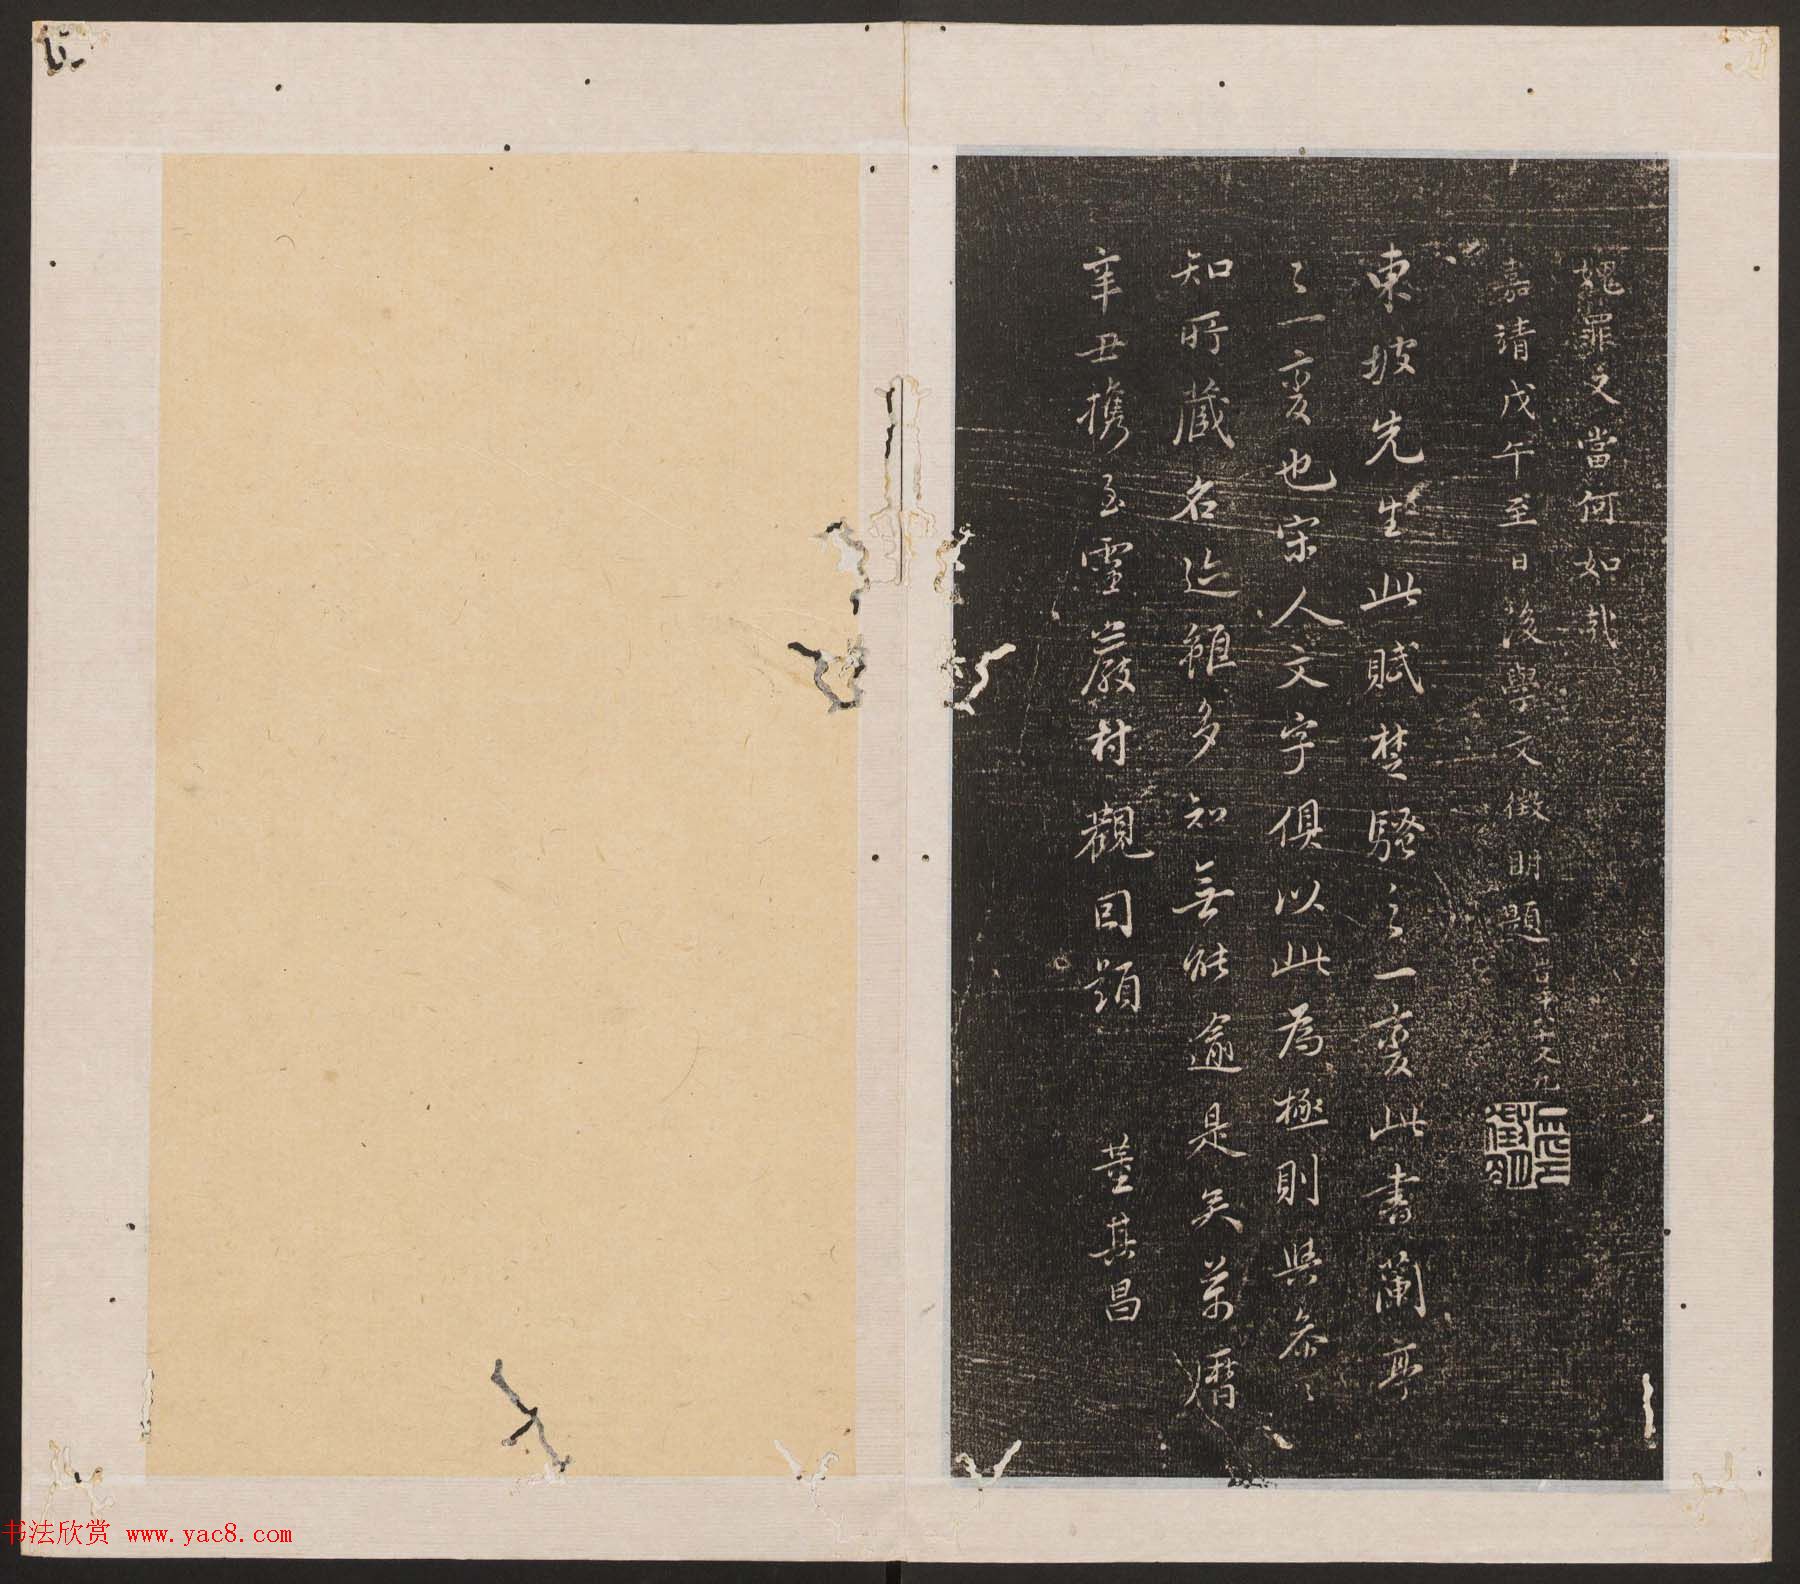 媿罪又當何如哉
嘉靖戊午至日後學文徵明題 旹年八十又九
東坡先生此賦楚騷之一変此書蘭亭
之一変也宋人文字俱以此為極則與叅〻
知所藏名迹雖多知無能逾是矣萬曆
辛丑携至靈巖村觀因題 董其昌
书法欣赏 www.yac8.com